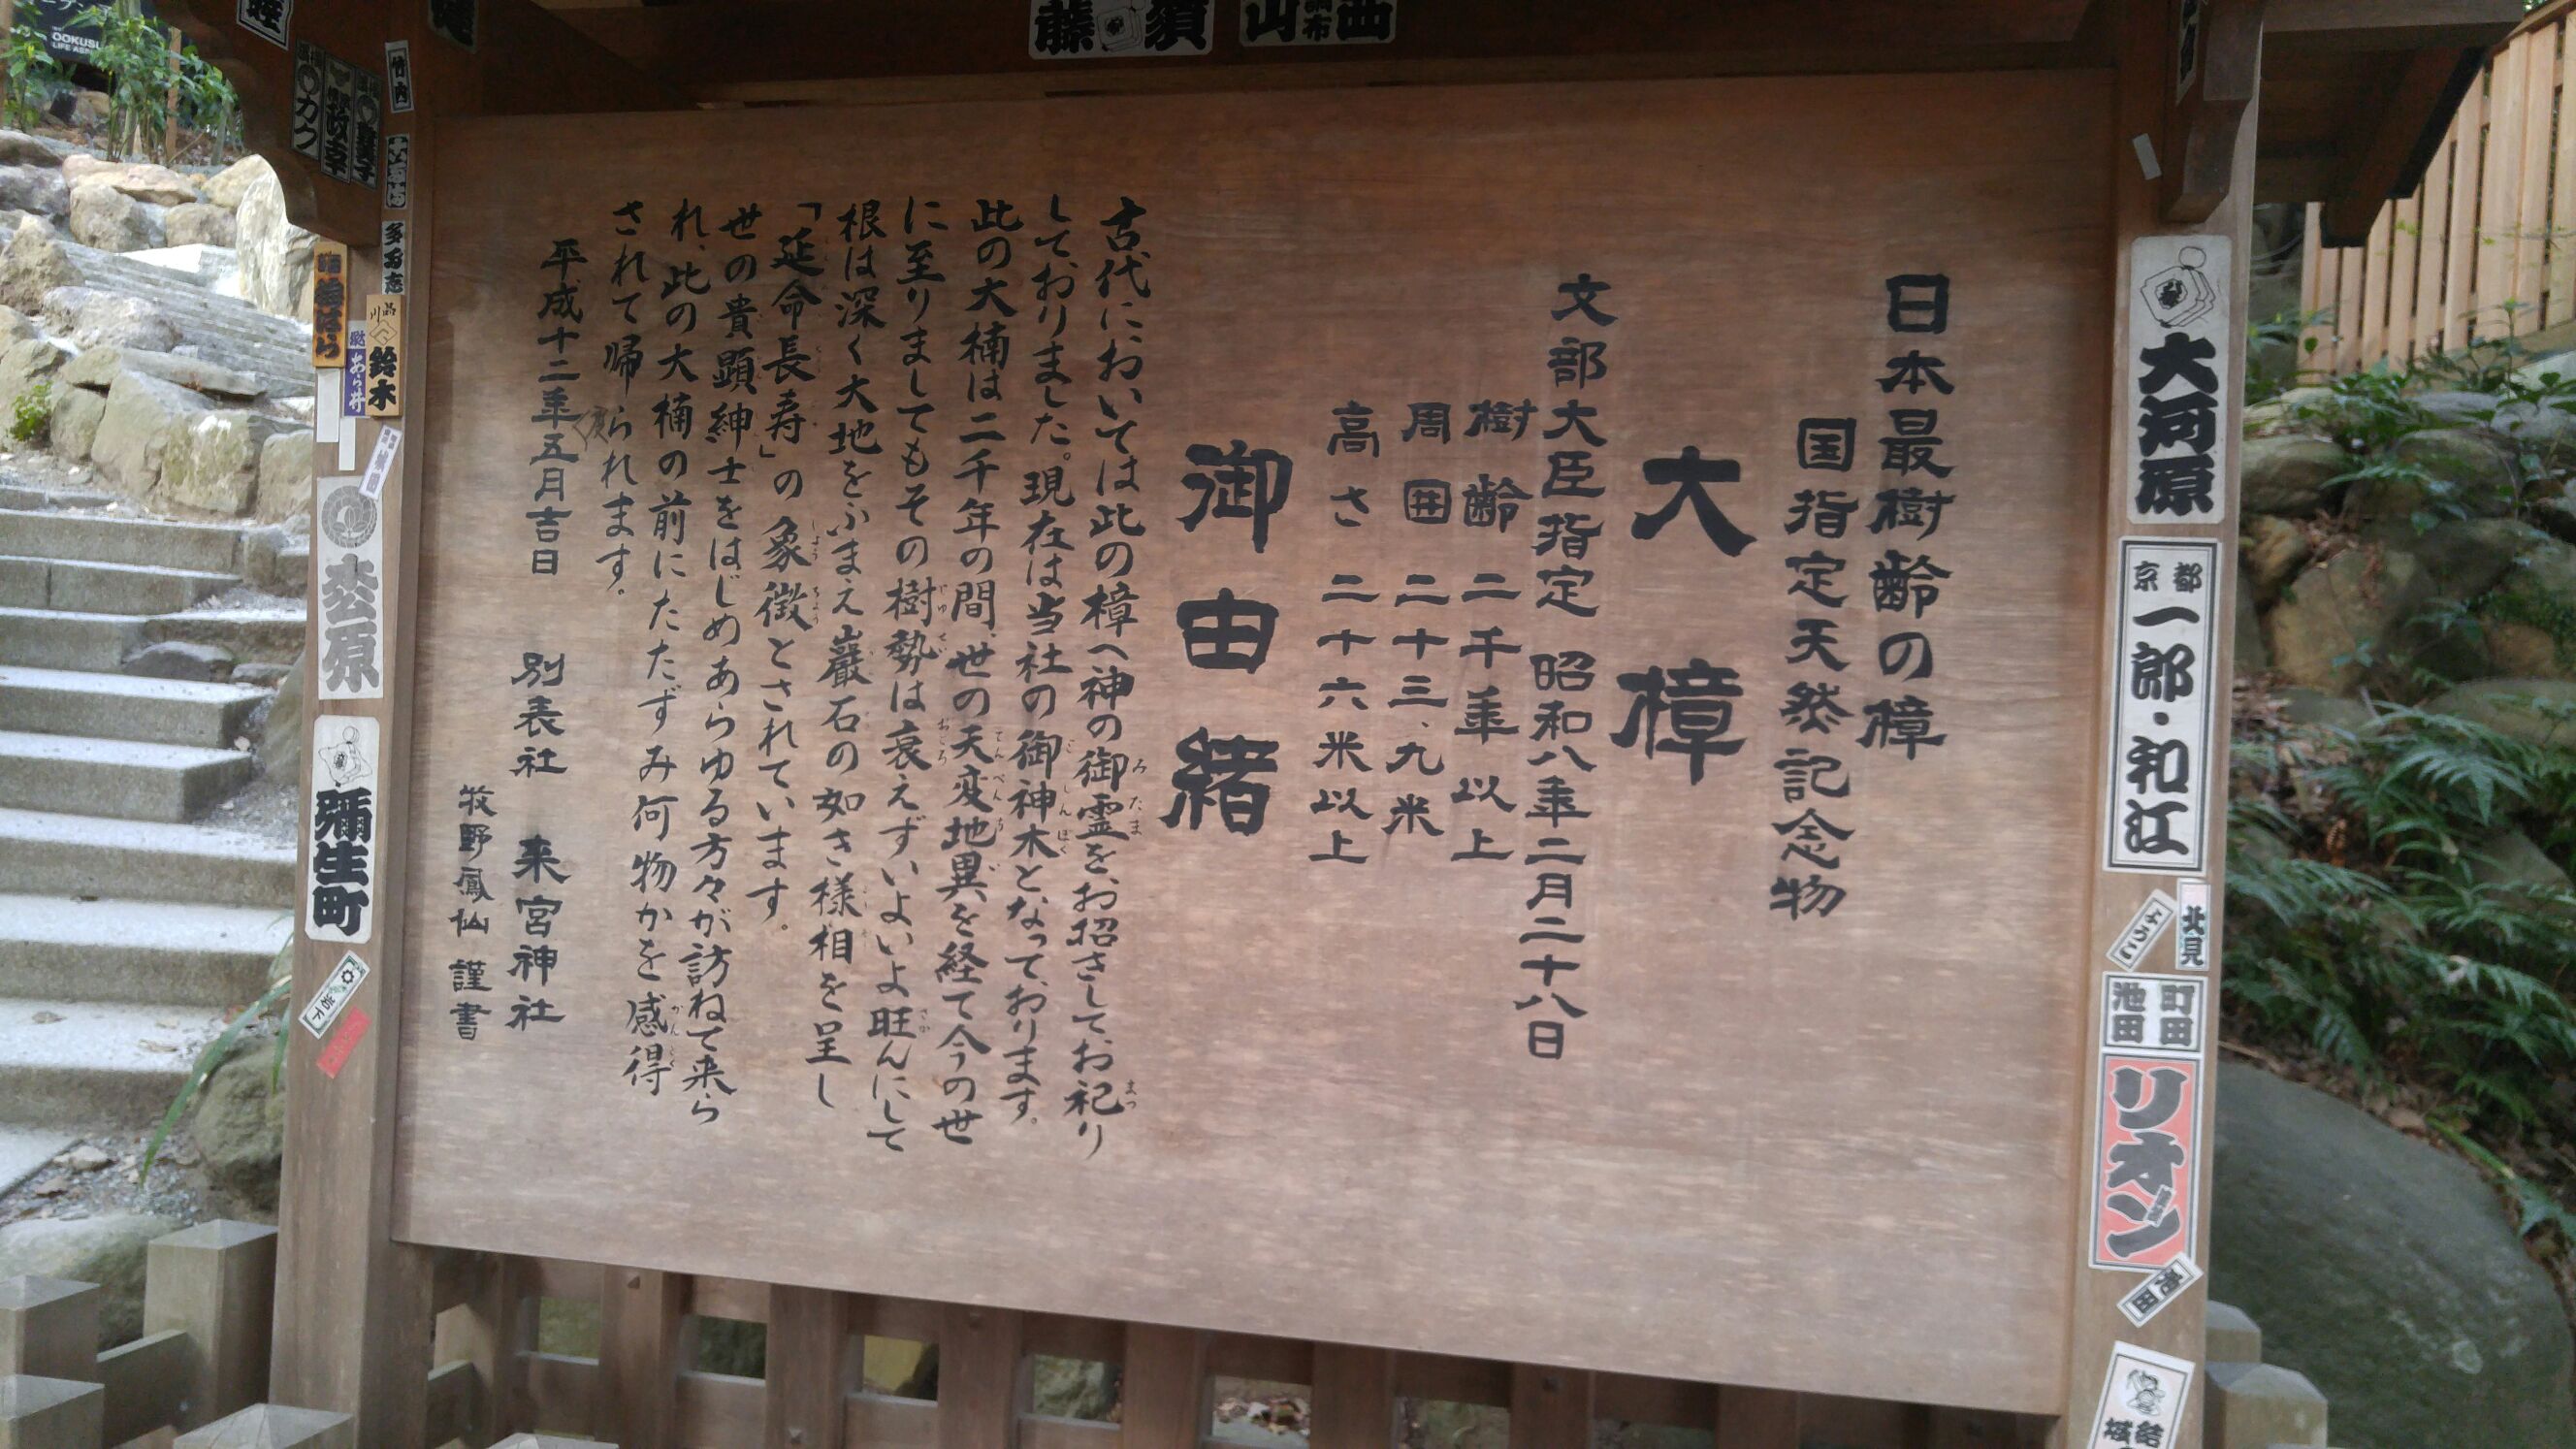 日本最樹齢の樟
国指定天然記念物
大樟
文部大臣指定 昭和八年二月二十八日
樹齢 二千年以上
周囲 二十三、九米
高さ 二十六米以上
御由緒
古代においては此の樟へ神の御霊をお招きしてお祀り
しておりました。現在は当社の御神木となっております。
此の大楠は二千年の間、世の天変地異を経て今の世
に至りましてもその樹勢は衰えずいよいよ旺んにして
根は深く大地をふまえ巖石の如き様相を呈し
「延命長寿」の象徴とされています。
世の貴顕紳士をはじめあらゆる方々が訪ねて来ら
れ、此の大楠の前にたたずみ何物かを感得
されて帰られます。
平成十二年五月吉日
別表社 来宮神社
牧野鳳仙 謹書
大河原
京都
一郎・和江
北見
町田
池田
リオン
池田
結城
藤須
山西
調布
竹内
カク
政幸
多万志
品川
鈴木
あら井
岩下
彌生町